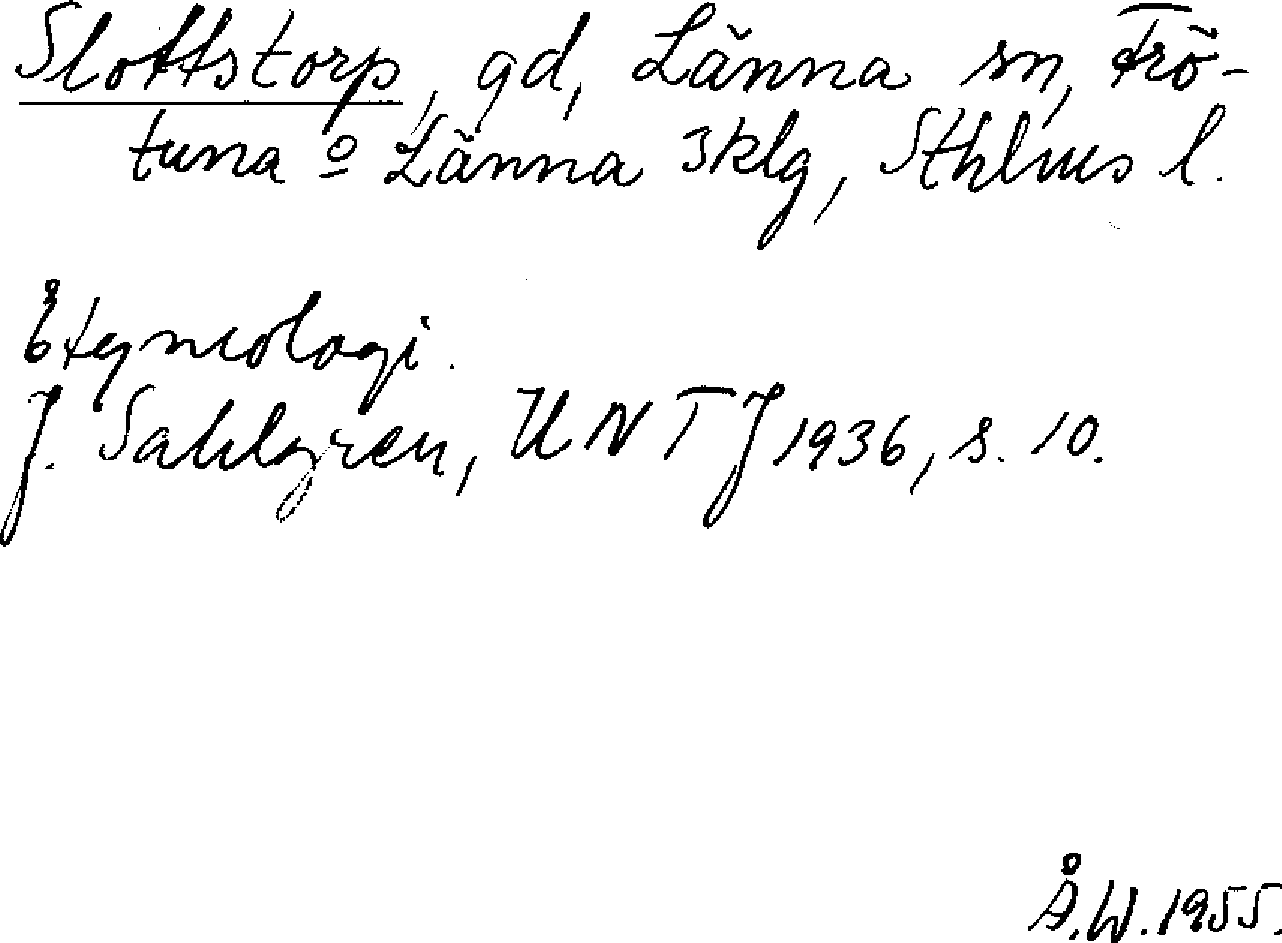 Slottstorp, gd, Länna sn, Frö-
tuna o Länna sklg, Sthlms l.
Etymologi.
J. Sahlgren, UNTJ 1936, s. 10.
Å.W. 1955.